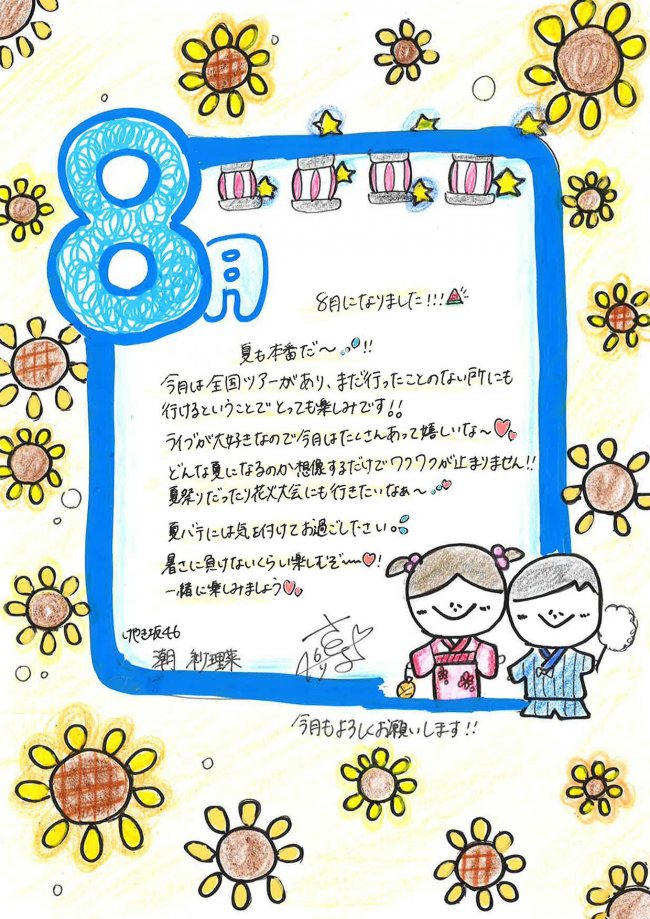 8月
8月になりました!!!
夏も本番だ〜!!
今月は全国ツアーがあり、まだ行ったことのない所にも
行けるということでとっても楽しみです!!
ライブが大好きなので今月はたくさんあって嬉しいな〜
どんな夏になるのか想像するだけでワクワクが止まりません!!
夏祭りだったり花火大会にも行きたいなぁ〜
夏バテには気を付けてお過ごしださい。
暑さに負けないくらい楽しむぞ〜!
一緒に楽しみましょう
けやき坂46
潮 紗理菜
今月もよろしくお願いします!!